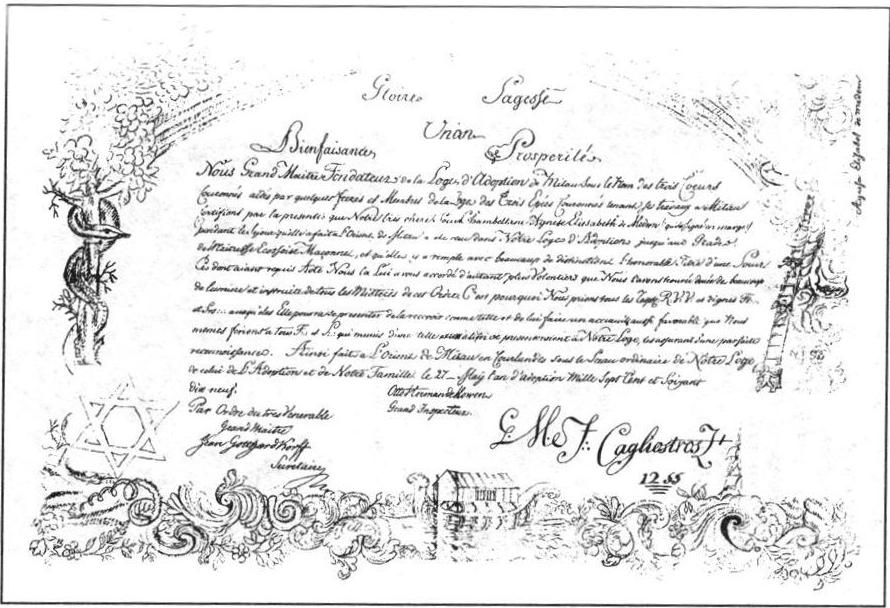 Gloire Sagesse
Union
Bienfaisance Prosperités
Nous Grand Maitre Fondateur de la Loge d'Adoption de Mitau sous le Nom des trois Coeurs
Couronnés aidés par quelques freres et Membres de la Loge des Trois Epées Couronnées tenant Travaux a Mitau
Certifions par la presente que Notre très chere Agnese Elisabeth de Medem en marge
pendant les a L'Orient de Mitau a été reçue dans Notre Loge d'Adoption jusqu'aux Grade
de Maitresse Ecossaise Maçonne, et qu'elle y a remplie avec beaucoup de distinctions honorable d'une Soeur
Ces dont aiant requis Acte Nous la Lui avons accordé d'autant plus Volontiers que Nous l'avons trouvée douée de beaucoup
de lumiere et instruite de tous les Misteres de cet Ordre C'est pourquoi Nous prions tous les R.V.V. et dignes F.
et S. auxquels Elle pourra se presenter de la recevoir comme telle et de lui faire un accueil aussi favorable que Nous
memes ferions a tous F. et S. qui munis d'une telle se presenteroient à Notre Loge, les assurant d'une parfaite
reconnoissance. Ainsi fait a L'Orient de Mitau en Courlande sous le Sceau ordinaire de Notre Loge
de celui de L'Adoption et de Notre Famille le 27 May l'an d'adoption Mille Sept Cent et Soixant
dix neuf.
Otto Hermann de Howen
Grand Inspecteur.
Par Ordre du tres Venerable
Grand Maitre
Jean Korff
Secretaire
G. M. e F. Cagliostros
1255
Agnese Elisabet de Medem